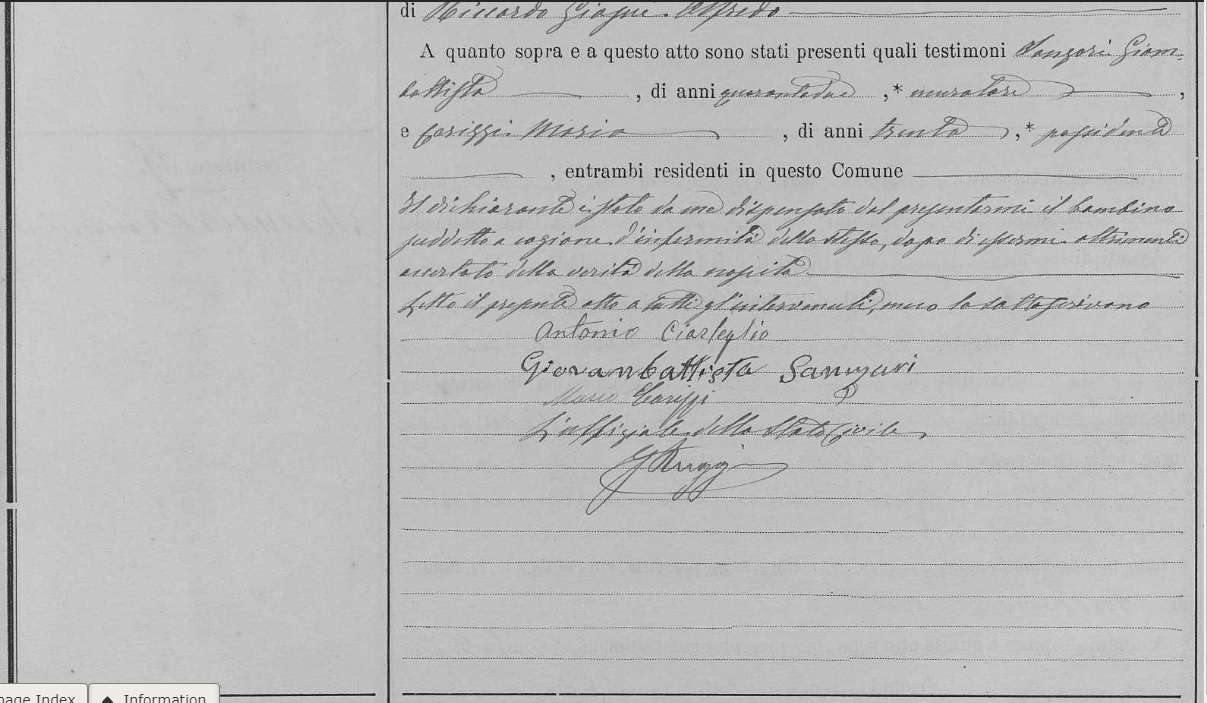 di Riccardo Giague Alfredo
A quanto sopra e a questo atto sono stati presenti quali testimoni Sangari Giam-
battista , di anni quarantadue ,* muratore ,
e Carizzi Mario , di anni trenta ,* possidente
, entrambi residenti in questo Comune
Il dichiarante è stato da me dispensato dal presentarmi il bambino
suddetto a cagione d'infermità dello stesso, dopo di essermi altrimenti
accertato della verità della nascita
Letto il presente atto a tutti gl'intervenuti, meco lo sottoscrivono
Antonio Ciarleglio
Giovanbattista Sangari
Mario Carizzi
L'uffiziale dello Stato Civile
nage Index
Information